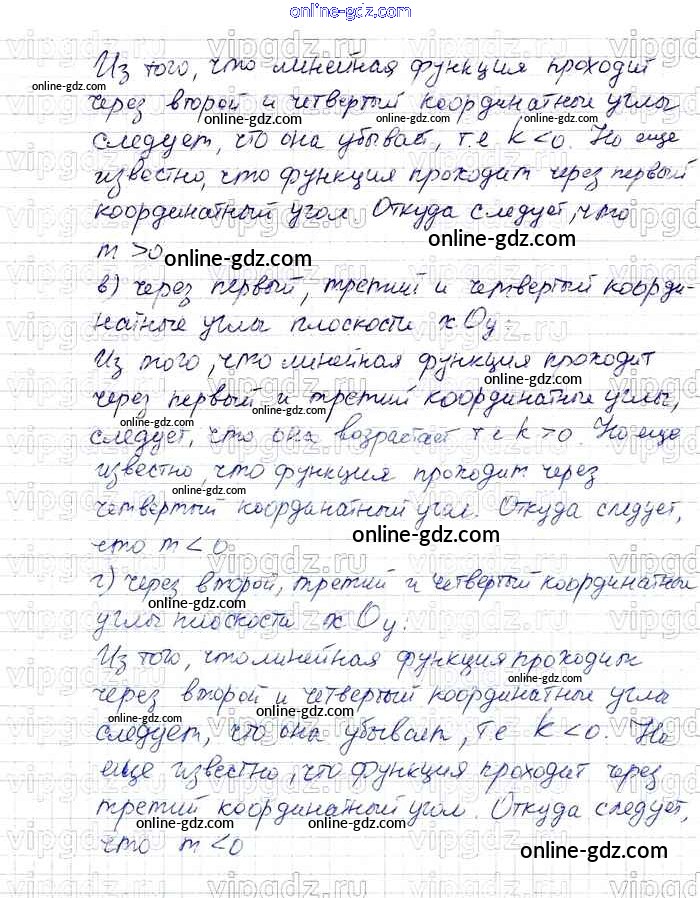 online-gdz.com
Из того, что линейная функция проходит
через второй и четвертый координатные углы
следует, что она убывает, т.е k < 0. Но еще
известно, что функция проходит через первый
координатный угол. Откуда следует, что
m > 0
в) через первый, третий и четвертый коорди-
натные углы плоскости xOy:
Из того, что линейная функция проходит
через первый и третий координатные углы,
следует, что она возрастает т е k > 0. Но еще
известно, что функция проходит через
четвертый координатный угол. Откуда следует,
что m < 0.
г) через второй, третий и четвертый координатные
углы плоскости xOy:
Из того, что линейная функция проходит
через второй и четвертый координатные угла
следует, что она убывает, т.е k < 0. Но
еще известно, что функция проходит через
третий координатный угол. Откуда следует,
что m < 0
online-gdz.com